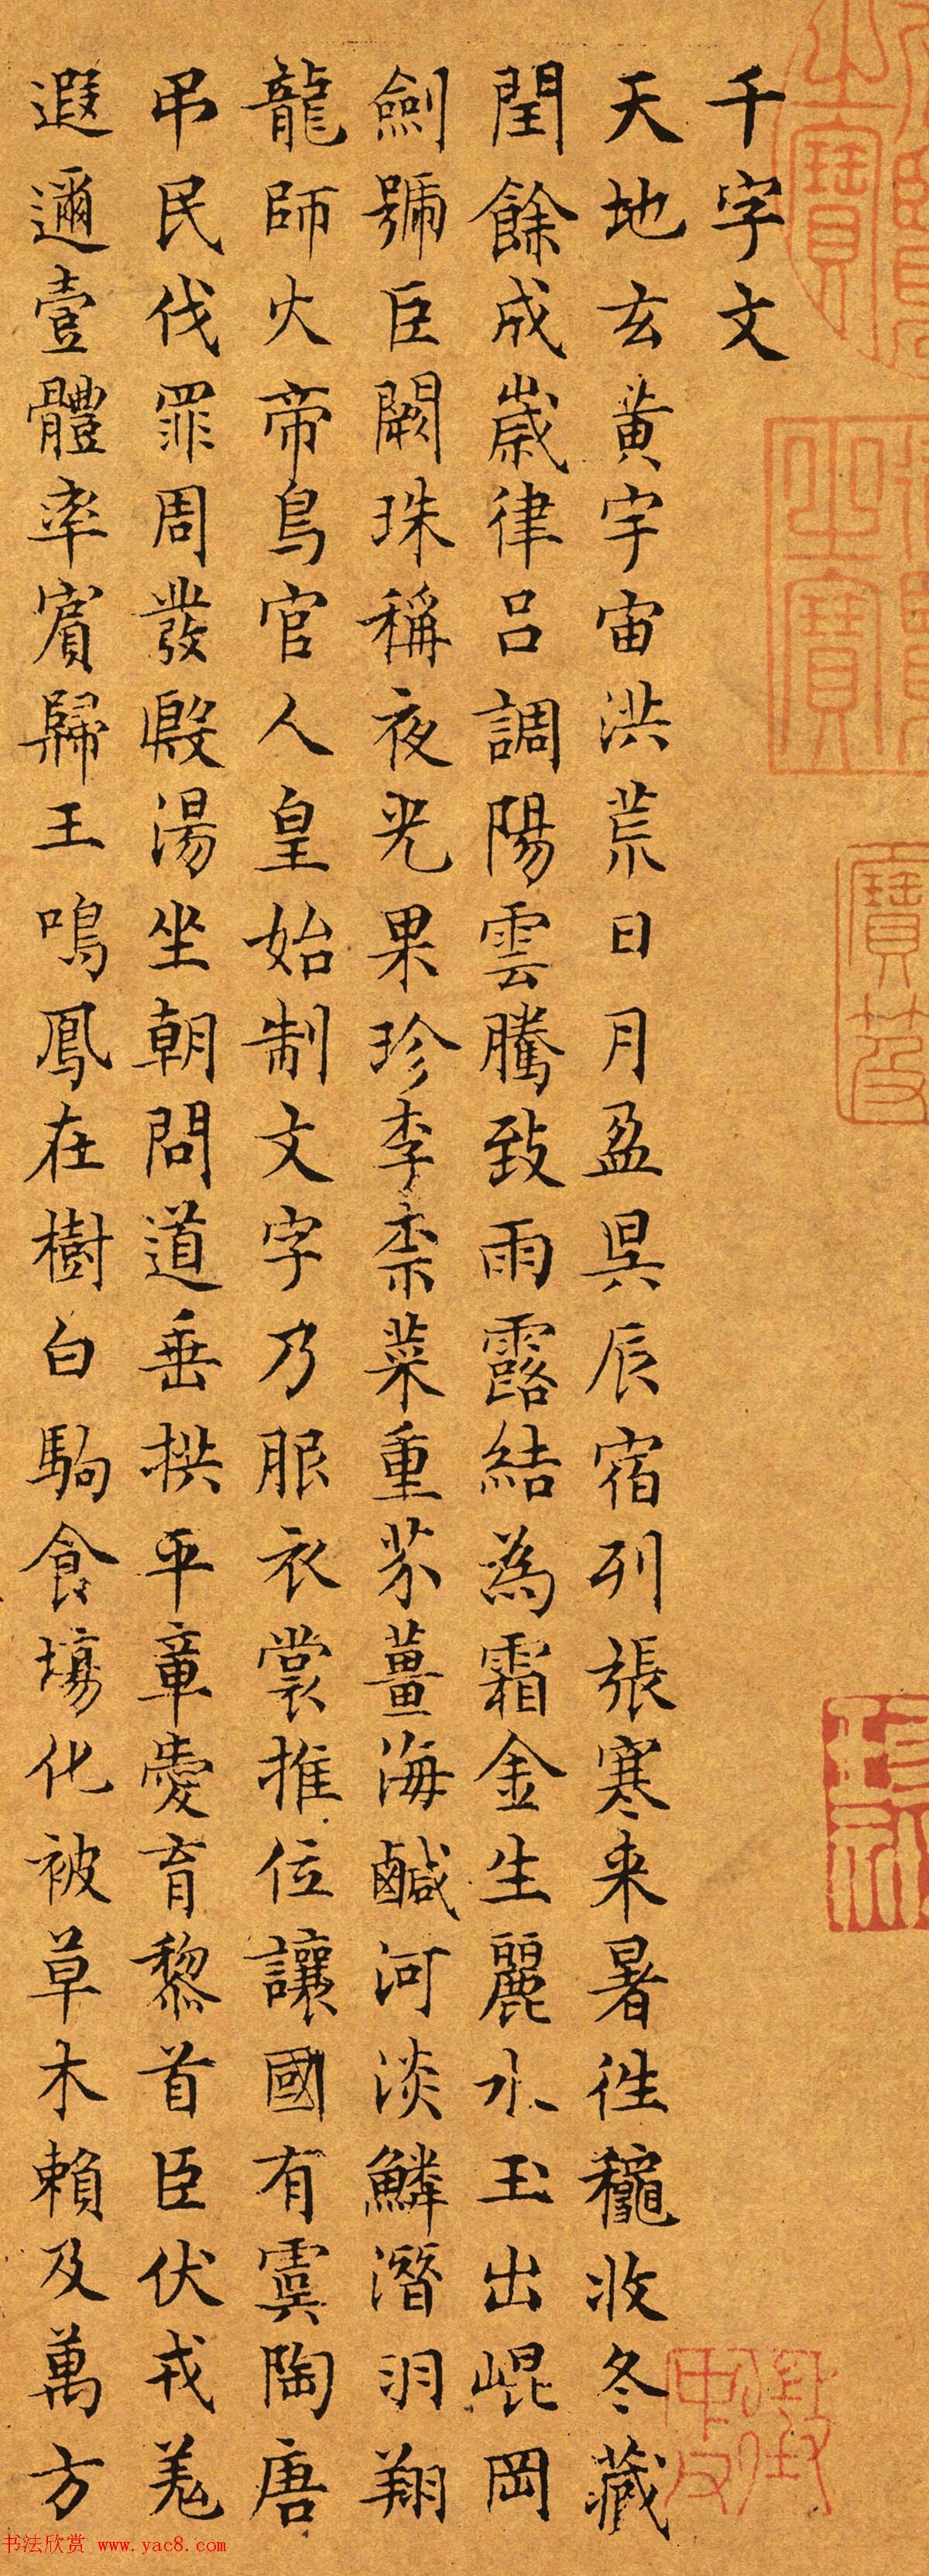 千字文
天地玄黃宇宙洪荒日月盈昃辰宿列張寒来暑往龝收冬藏
閏餘成歲律呂調陽雲騰致雨露結為霜金生麗水玉出崐岡
劍號巨闕珠稱夜光果珍李柰菜重芥薑海鹹河淡鱗潛羽翔
龍師火帝鳥官人皇始制文字乃服衣裳推位讓國有虞陶唐
弔民伐罪周發殷湯坐朝問道垂拱平章愛育黎首臣伏戎羌
遐邇壹體率賓歸王鳴鳳在樹白駒食場化被草木賴及萬方
书法欣赏 www.yac8.com